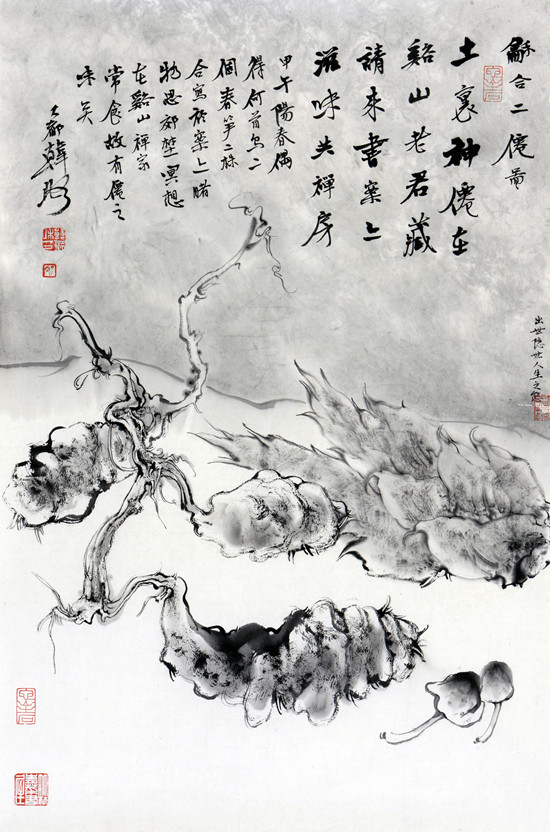 龢合二僊图
土裏神僊在
谿山老君藏
請來書案上
滋味共禪房
甲午陽春偶
得何首乌二
個春笋二株
合寫於案上睹
物思郊埜冥想
在谿山禪家
常食故有僊之
味矣
出世隐世人生之